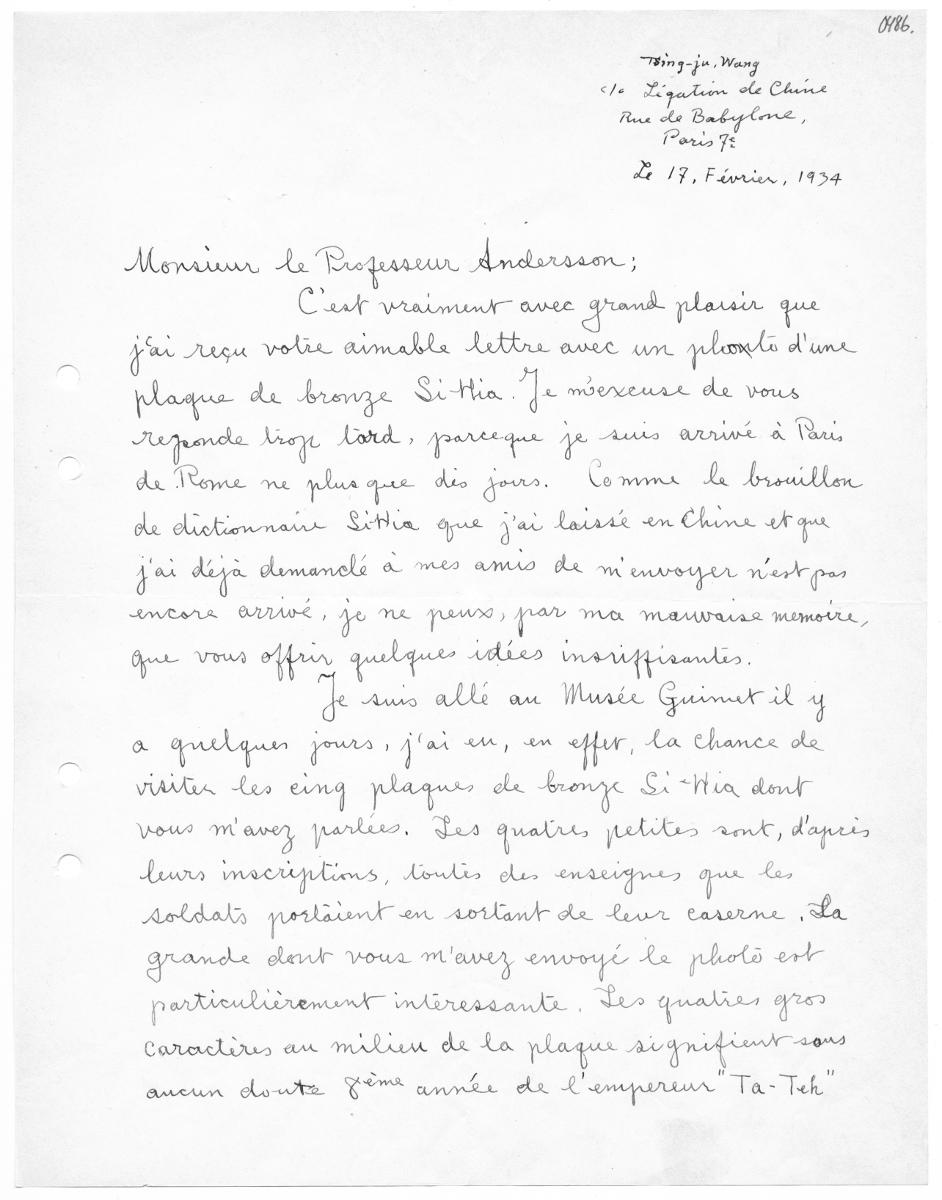 0486.
Tsing-ju, Wang
c/o Légation de Chine
Rue de Babylone,
Paris 7e
Le 17, Février, 1934
Monsieur le Professeur Andersson;
C'est vraiment avec grand plaisir que
j'ai reçu votre aimable lettre avec un photo d'une
plaque de bronze Si-Hia. Je m'excuse de vous
reponde trop tard, parceque je suis arrivé à Paris
de Rome ne plus que dès jours. Comme le brouillon
de dictionnaire Si-Hia que j'ai laissé en Chine et que
j'ai déjà demandé à mes amis de m'envoyer n'est pas
encore arrivé, je ne peux, par ma mauvaise memoire,
que vous offrir quelques idées insuffisantes.
Je suis allé au Musée Guimet il y
a quelques jours, j'ai eu, en effet, la chance de
visiter les cinq plaques de bronze Si-Hia dont
vous m'avez parlées. Les quatres petites sont, d'après
leurs inscriptions, toutes des enseignes que les
soldats portaient en sortant de leur caserne. La
grande dont vous m'avez envoyé le photo est
particulièrement intéressante. Les quatres gros
caractères au milieu de la plaque signifient sans
aucun doute année de l'empereur "Ta-Teh"